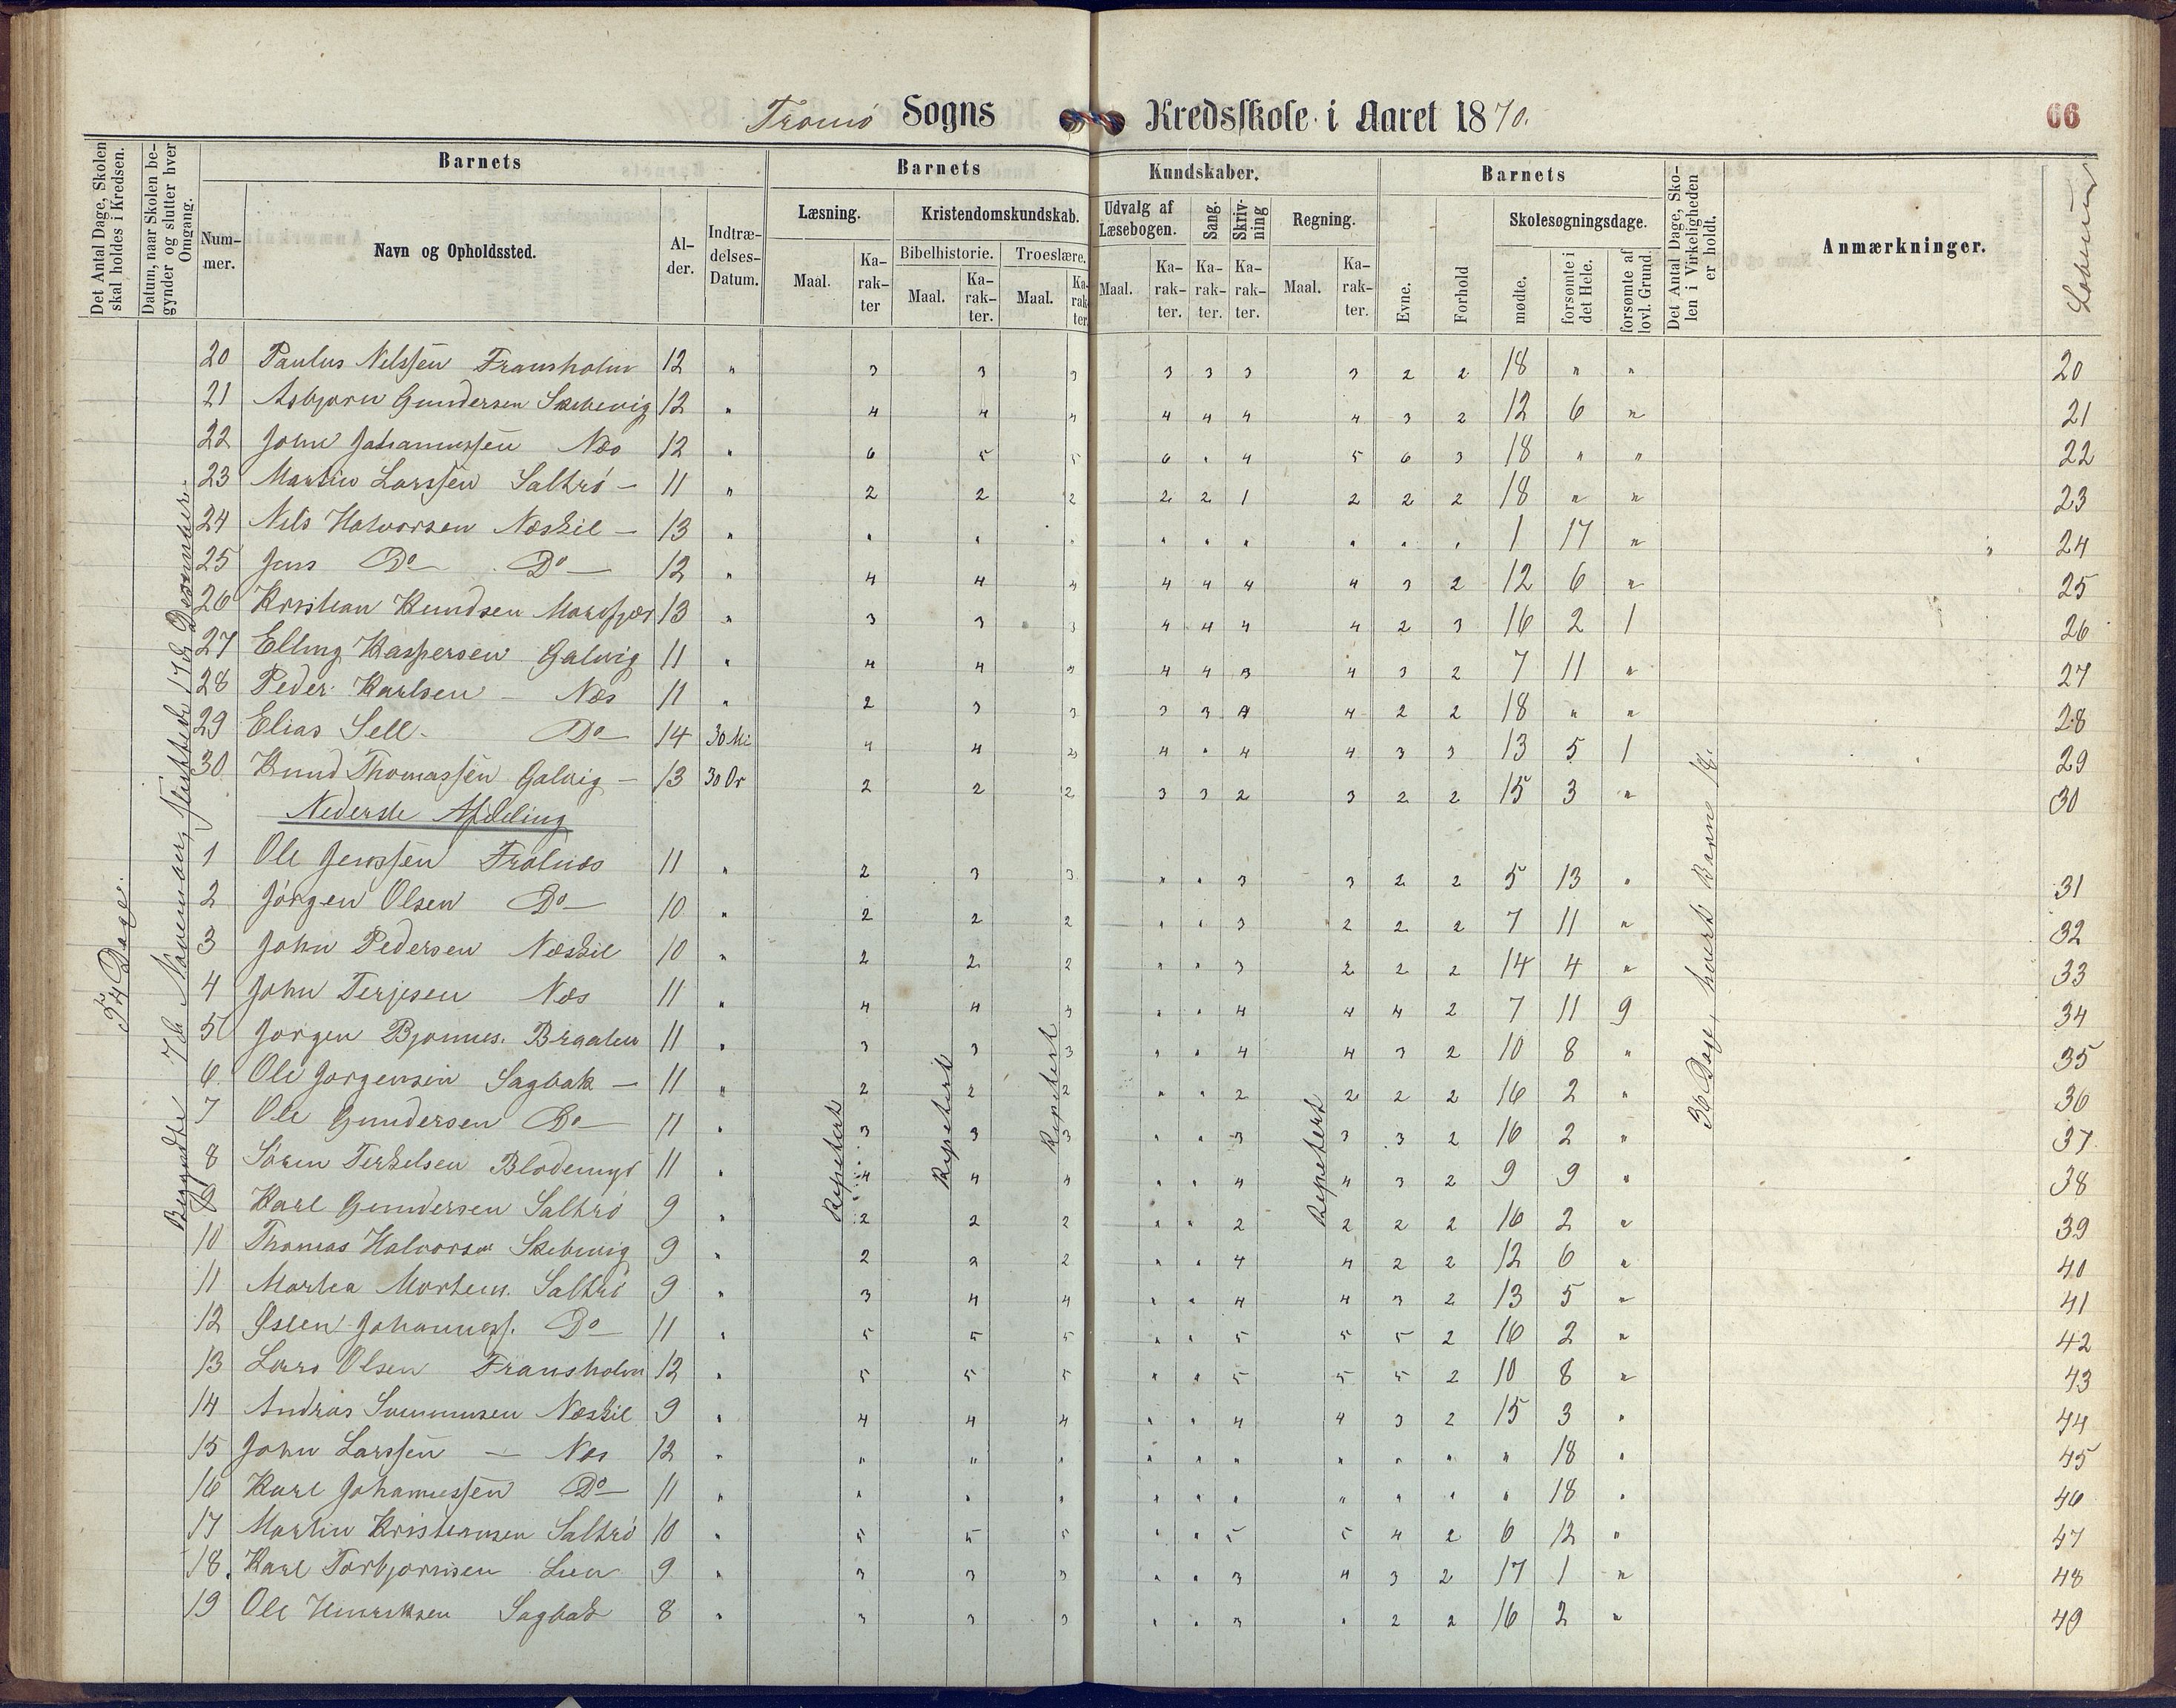 Tromö Sogns Kredsskole i Aaret 1870.
66
Det Antal Dage, Skolen skal holdes i Kredsen.
Datum, naar Skolen begynder og slutter hver Omgang.
Barnets
Barnets
Kundskaber.
Barnets
Det Antal Dage, Skolen i Virkeligheden er holdt.
Anmærkninger.
Nummer.
Navn og Opholdssted.
Alder.
Indtrædelses-Datum.
Læsning.
Kristendomskundskab.
Udvalg af Læsebogen.
Sang.
Skrivning
Regning.
Evne.
Forhold
Skolesøgningsdage.
Bibelhistorie.
Troeslære.
Maal.
Karakter
Maal.
Karakter.
Maal.
Karakter.
Maal.
Karakter.
Karakter.
Karakter.
Maal.
Karakter.
mødte.
forsømte i det Hele.
forsømte af lovl. Grund.
54 Dage.
Begyndte 7de November, sluttede 17de Desember.
Repetert
Repetert
Repetert
Repetert
36 Dage, hvert Barn 18.
20 Paulus Nilssen Fransholm 12 " 3 3 3 3 3 3 3 2 2 18 " " 20
21 Asbjørn Gundersen Skibevig 12 " 4 4 4 4 4 4 4 3 2 12 6 " 21
22 John Johannessen Næs 12 " 6 5 5 6 " 4 5 6 3 18 " " 22
23 Martin Larssen Saltrö — 11 " 2 2 2 2 2 1 2 2 2 18 " " 23
24 Nils Halvorsen Næskil — 13 " " " " " " " " " " 1 17 " 24
25 Jens Do Do 12 " 4 4 4 4 4 4 4 3 2 12 6 " 25
26 Kristian Knudsen Marsfjær 13 " 3 3 3 4 4 4 4 2 3 16 2 1 26
27 Elling Kaspersen Galvig 11 " 4 4 4 4 4 3 4 3 2 7 11 " 27
28 Peder Karlsen — Næs 11 " 2 3 3 3 3 4 4 2 2 18 " " 28
29 Elias Sell. Do 14 30 Mi 4 4 2 4 " 4 4 3 3 13 5 1 29
30 Knud Thomassen Galvig — 13 30 Or 2 2 2 3 3 2 3 2 2 15 3 " 30
Nederste Afdeling
1 Ole Jenssen Frolnæs 11 " 2 3 3 " " 3 3 2 2 5 13 " 31
2 Jörgen Olsen Do 10 " 2 2 2 " " 3 2 2 2 7 11 " 32
3 John Pedersen Næskil 10 " 2 2 2 " " 3 2 2 2 14 4 " 33
4 John Terjesen Næs 11 " 4 4 4 " " 4 4 4 2 7 11 9 34
5 Jorgen Bjonnes. Braaten 11 " 3 3 3 " " 4 4 3 2 10 8 " 35
6 Ole Jorgensen Sagbak — 11 " 2 2 2 " " 2 2 2 2 16 2 " 36
7 Ole Gundersen Do 11 " 3 3 3 " " 3 3 3 2 16 2 " 37
8 Sören Terkelsen Blodemyr 11 " 4 4 4 " " 4 4 3 2 9 9 " 38
9 Karl Gundersen Saltrö 9 " 2 2 2 " " 2 2 2 2 16 2 " 39
10 Thomas Halvorsen Skibevig 9 " 2 2 2 " " 4 4 2 2 12 6 " 40
11 Martea Mortens. Saltrö 9 " 3 4 4 " " 4 4 3 2 13 5 " 41
12 Johanness. Do 11 " 5 5 5 " " 5 5 5 2 16 2 " 42
13 Lars Olsen Fransholm 12 " 5 5 5 " " 5 5 5 2 10 8 " 43
14 Andras Næskil 9 " 4 4 4 " " 4 4 3 2 15 3 " 44
15 John Larssen — Næs 12 " " " " " " " " " " " 18 " 45
16 Karl Johannessen Do 11 " " " " " " " " " " " 18 " 46
17 Martin Kristiansen Saltrö 10 " 5 5 5 " " 5 5 4 2 6 12 " 47
18. Karl Torbjornsen Lien 9 " 3 3 3 " " 3 4 3 2 17 1 " 48
19 Ole Henriksen Sagbak 8 " 3 3 3 " " 3 " 2 2 16 2 " 49